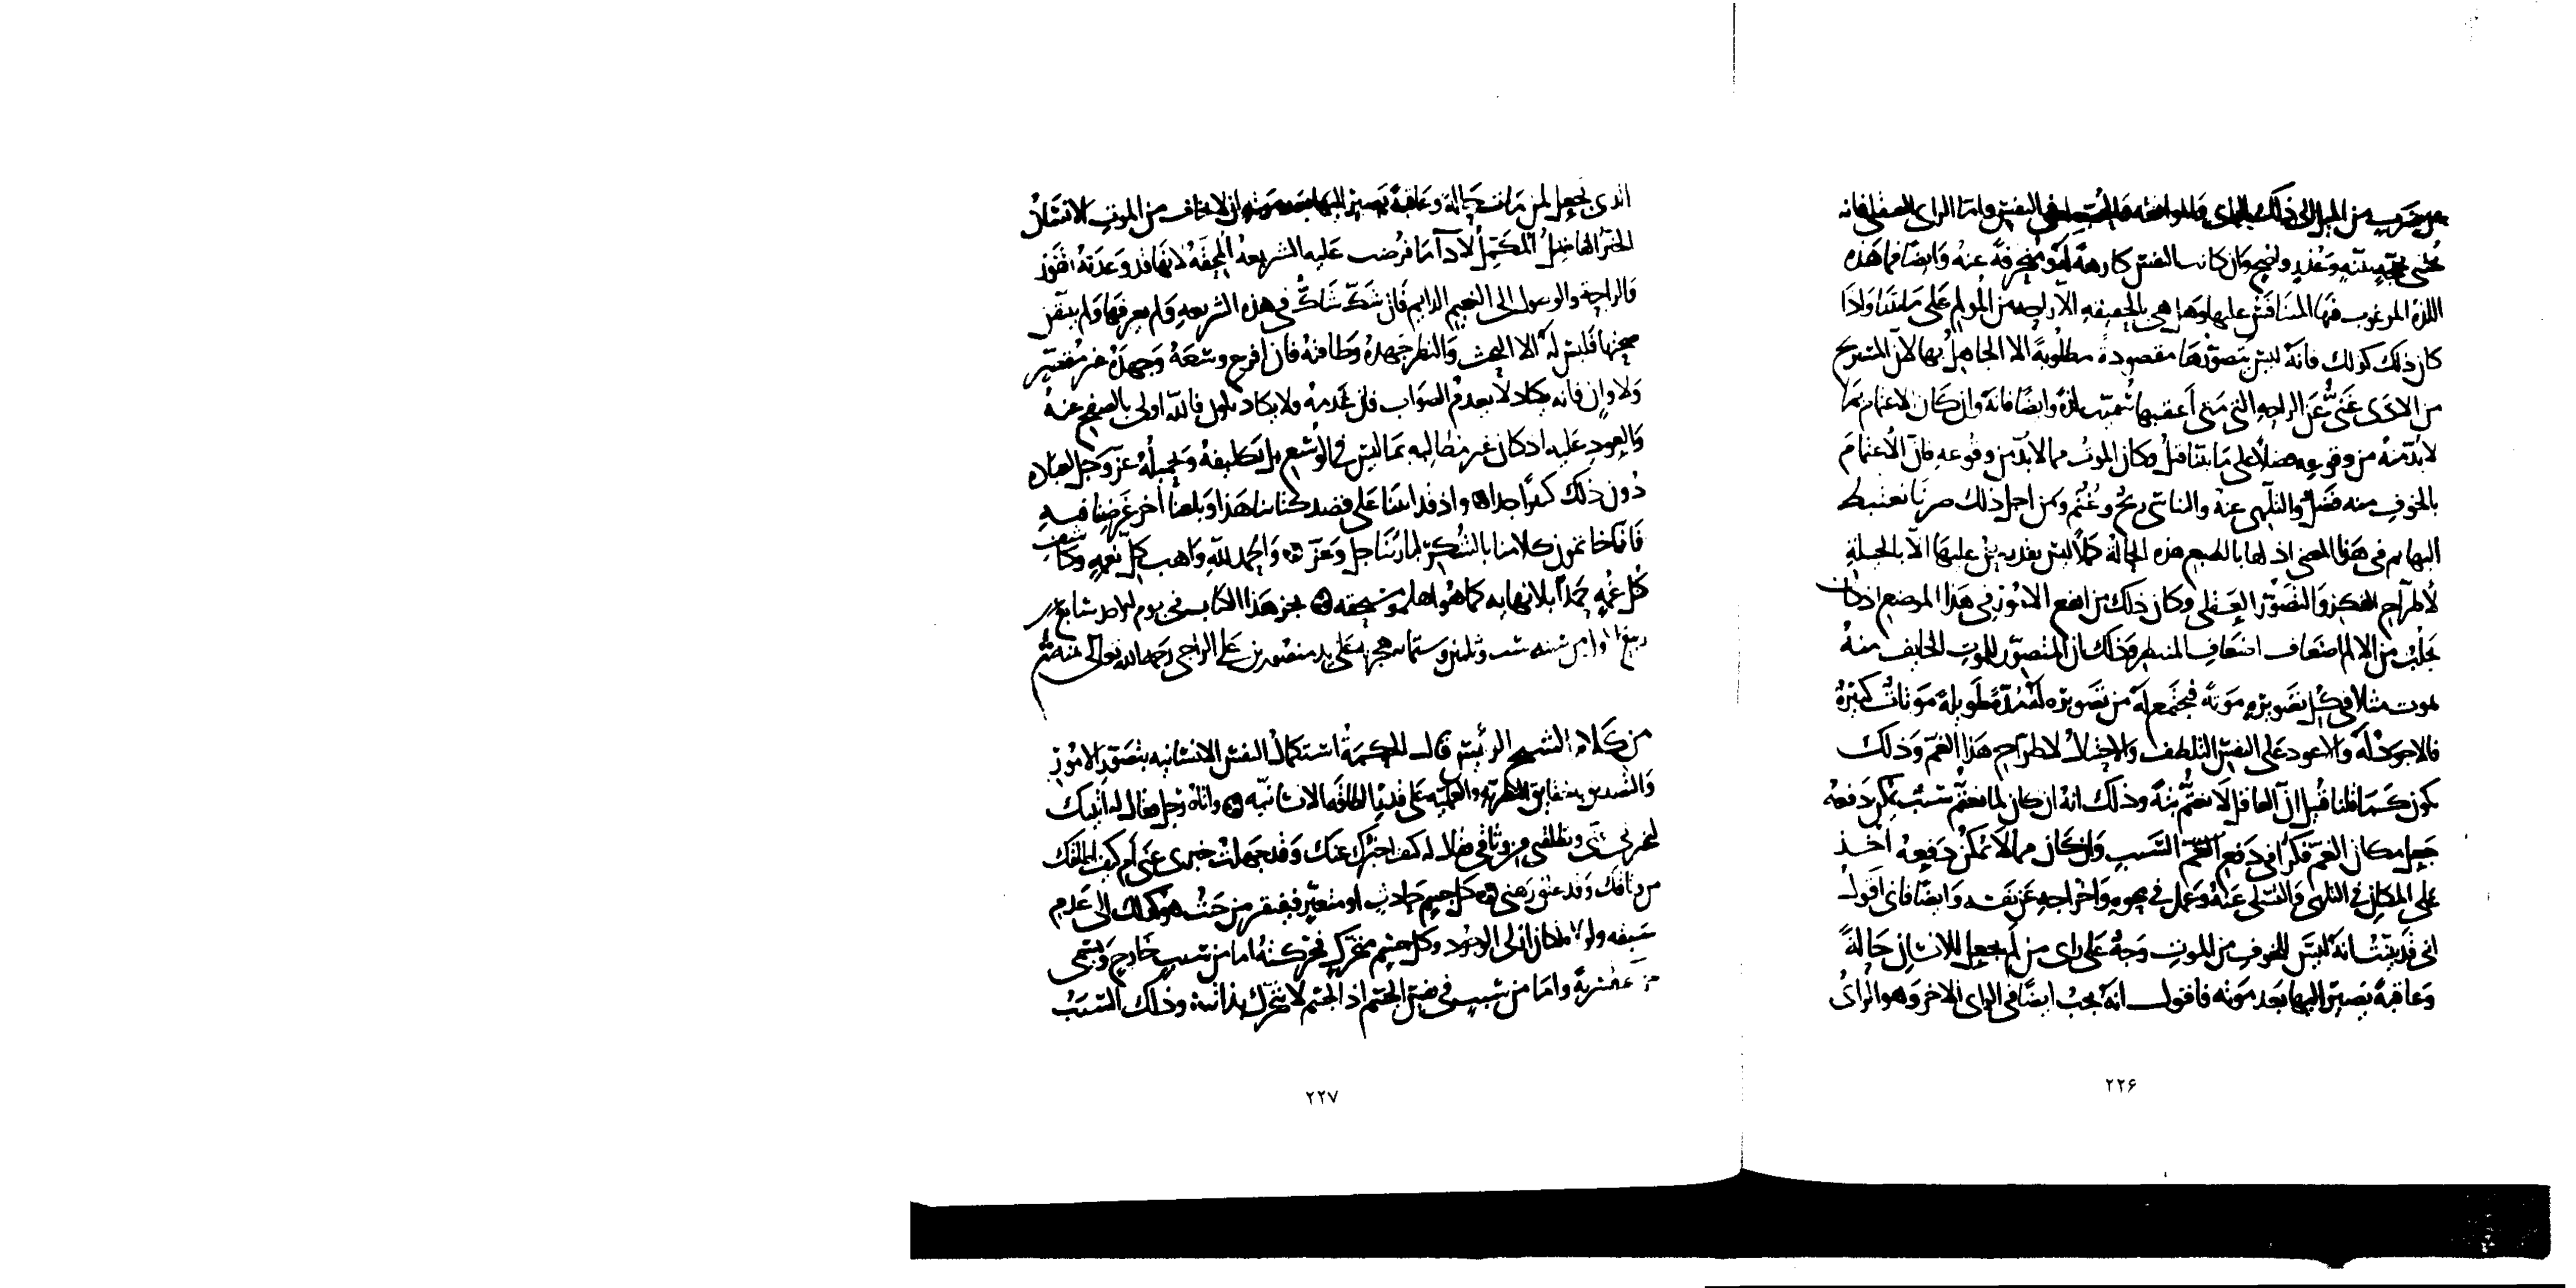 من ضرب من الميل الى ذلك الراى والموافقه والاستحلا فى النفس واما الراى العقلى فانه
يجتنى بحجة بينة وعذر واضح وان كانت النفس كارهة له ومنحرفة عنه وايضا فما هذه
اللذة المرغوب فيها المتنافس عليها وهل هى بالحقيقه الا راحه من المولم على ما بينا واذا
كان ذلك كذلك فانه ليس يتصورها مقصودة مطلوبة الا الجاهل بها لان المستريح
من الاذى غنى عن الراحه التى متى اعقبها سميت لذة وايضا فانه وان كان الاغتمام بما
لا بد منه من وقوعه فضلا على ما بينا قبل وكان الموت مما لا بد من وقوعه فان الاغتمام
بالخوف منه فضل والتلهى عنه والتناسى ربح وغنم ومن اجل ذلك صرنا نغتبط
البهايم فى هذا المعنى اذ لها بالطبع هذه الحالة كملا ليس يقدر نحن عليها الا بالحيلة
لاطراح الفكر والتصور العقلى وكان ذلك من انفع الامور فى هذا الموضع اذ كان
يجلب من الالم اضعاف اضعاف المنتظر وذلك ان المتصور للموت الخايف منه
يموت مثلا فى كل تصويره موتة فيجتمع له من تصويره له مدة طويلة موتات كثيرة
فالاجود له والاعود على النفس التلطف والاحتيال لاطراح هذا الغم وذلك
يكون كما قلنا قبل ان العاقل لا يغتم بتة وذلك انه ان كان لما يغتم سبب يمكن دفعه
جعل مكان الغم فكرا فى دفع السبب وان كان مما لا يمكن دفعه اخذ
على المكان فى التلهى والتسلى عنه وعمل فى محوه واخراجه عن نفسه وايضا فانى اقول
انى قد بينت انه ليس للخوف من الموت وجه على راى من لم يجعل للانسان حالة
وعاقبة يصير اليها بعد موته فاقول انه يجب ايضا فى الراى الاخر وهو الراى
٢٢۶
الذى يجعل لمن مات حالة وعاقبة يصير اليها بعد موته ان لا يخاف من الموت الانسان
الخير الفاضل المكمل لادآ ما فرضت عليه الشريعه المحقه لانها قد وعدته الفوز
والراحة والوصول الى النعيم الدايم فان شك شاك فى هذه الشريعه ولم يعرفها ولم يتيقن
صحتها فليس له الا البحث والنظر جهده وطاقته فان افرغ وسعه وجهده غير مقصر
ولا وان فانه يكاد لا يعدم الصواب فان عدمه ولا يكاد يكون فالله اولى بالصفح عنه
والعود عليه اذ كان غير مطالبه بما ليس فى الوسع بل تكليفه وتحميله عز وجل لعباده
دون ذلك كثيرا جدا واذ قد اتينا على قصد كتابنا هذا وبلغنا اخر غرضنا فيه
فانا خاتمون كلامنا بالشكر لربنا جل وعز والحمد لله واهب كل نعمه وكاشف
كل غمه حمدا بلا نهايه كما هو اهله ومستحقه نجز هذا الكتاب فى يوم سابع
سنه ست وثلثين وستمايه هجريه على يد منصور بن على الراجى رحمه الله تعالى
من كلام الشيخ الرئيس قال الحكمة استكمال النفس الانسانيه بتصور الامور
والتصديق بحقايق النظريه والعمليه على قدر الطاقه الانسانيه واتاه رجل فقال له اتيتك
لتخبرنى عنى وتطلقنى من وثاقى فقال له كيف اخبرك عنك وقد جهلت خبرى عنى ام كيف اطلقك
من وثاقك وقد عنى رهنى كل جسم حادث او متغير فيفتقر من حيث هو كذلك الى عدم
سبقه ولولاه لكان ازلى الوجود وكل جسم متحرك فحركته اما من سبب خارج ويسمى
حركة قسرية واما من سبب فى نفس الجسم اذ الجسم لا يتحرك بذاته وذلك السبب
٢٢٧